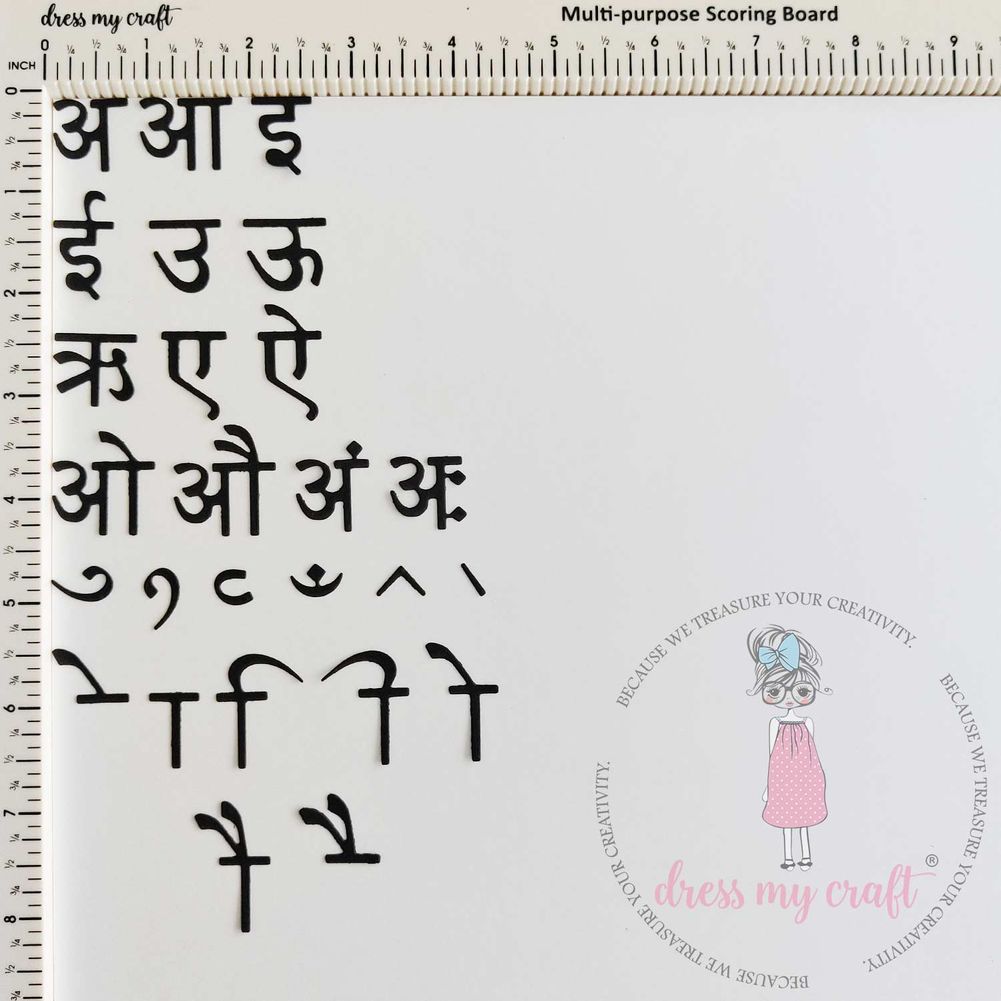 dress my craft
Multi-purpose Scoring Board
0 ¼ ½ ¾ 1 ¼ ½ ¾ 2 ¼ ½ ¾ 3 ¼ ½ ¾ 4 ¼ ½ ¾ 5 ¼ ½ ¾ 6 ¼ ½ ¾ 7 ¼ ½ ¾ 8 ¼ ½ ¾ 9 ¼ ½
INCH
0 ¼ ½ ¾ 1 ¼ ½ ¾ 2 ¼ ½ ¾ 3 ¼ ½ ¾ 4 ¼ ½ ¾ 5 ¼ ½ ¾ 6 ¼ ½ ¾ 7 ¼ ½ ¾ 8 ¼ ½ ¾
अ आ इ
ई उ ऊ
ऋ ए ऐ
ओ औ अं अः
ु ू ृ ँ ^ ्
े ा ि ी ो
ौ ै
BECAUSE WE TREASURE YOUR CREATIVITY.
BECAUSE WE TREASURE YOUR CREATIVITY.
BECAUSE WE TREASURE YOUR CREATIVITY.
dress my craft ®